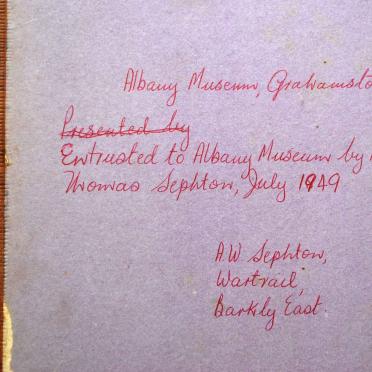 Albany Museum, Grahamsto
Presented by
Entrusted to Albany Museum by
Thomas Sephton, July 1949
A.W Sephton,
Wartrail,
Barkly East.